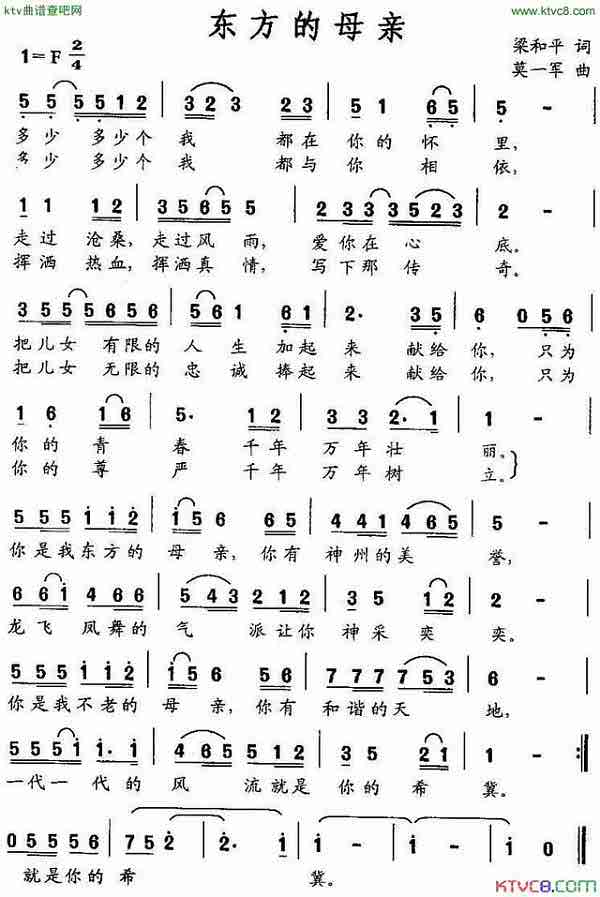 ktv曲谱查吧网
东方的母亲
www.ktvc8.com
1=F 2/4
梁和平 词
莫一军 曲
5 5 5 5 1 2 | 3 2 3 2 3 | 5 1 6 5 | 5 - |
多少 多少个 我 都在 你的 怀 里,
多少 多少个 我 都与 你 相 依,
1 1 1 2 | 3 5 6 5 5 | 2 3 3 3 5 2 3 | 5 - |
走过 沧桑, 走过风 雨, 爱你在 心 底。
挥洒 热血, 挥洒真 情, 写下那 传 奇。
3 5 5 5 6 5 6 | 5 1 6 1 | 2· 3 5 | 6 0 5 6 |
把儿女 有限的 人生 加起 来 献给 你, 只为
把儿女 无限的 忠诚 捧起 来 献给 你, 只为
1 6 1 6 | 5· 1 2 | 3 2 2· 1 | 1 - |
你的 青 春 千年 万年壮 丽。
你的 尊 严 千年 万年树 立。
5 5 5 i i 2 | i 5 6 6 5 | 4 4 1 4 6 5 | 5 - |
你是我东方的 母 亲, 你有 神州的美 誉,
6 6 i 4 6 6 | 5 4 3 2 1 2 | 3 5 i 2 | 2 - |
龙飞 凤舞的 气 派让你 神采 奕 奕。
5 5 5 i i 2 | i 5 i 5 5 | 7 7 7 7 5 3 | 5 - |
你是我不老的 母 亲, 你有 和谐的天 地,
5 5 5 i i· i | 4 6 5 5 1 2 | 3 5 2 1 | 1 - :||
一代一 代的 风 流就是 你的 希 冀。
0 5 5 5 5 6 | 7 5 2 | 2· i | i - | i - | i 0 ||
就是你的 希 冀。
KTVC8.com